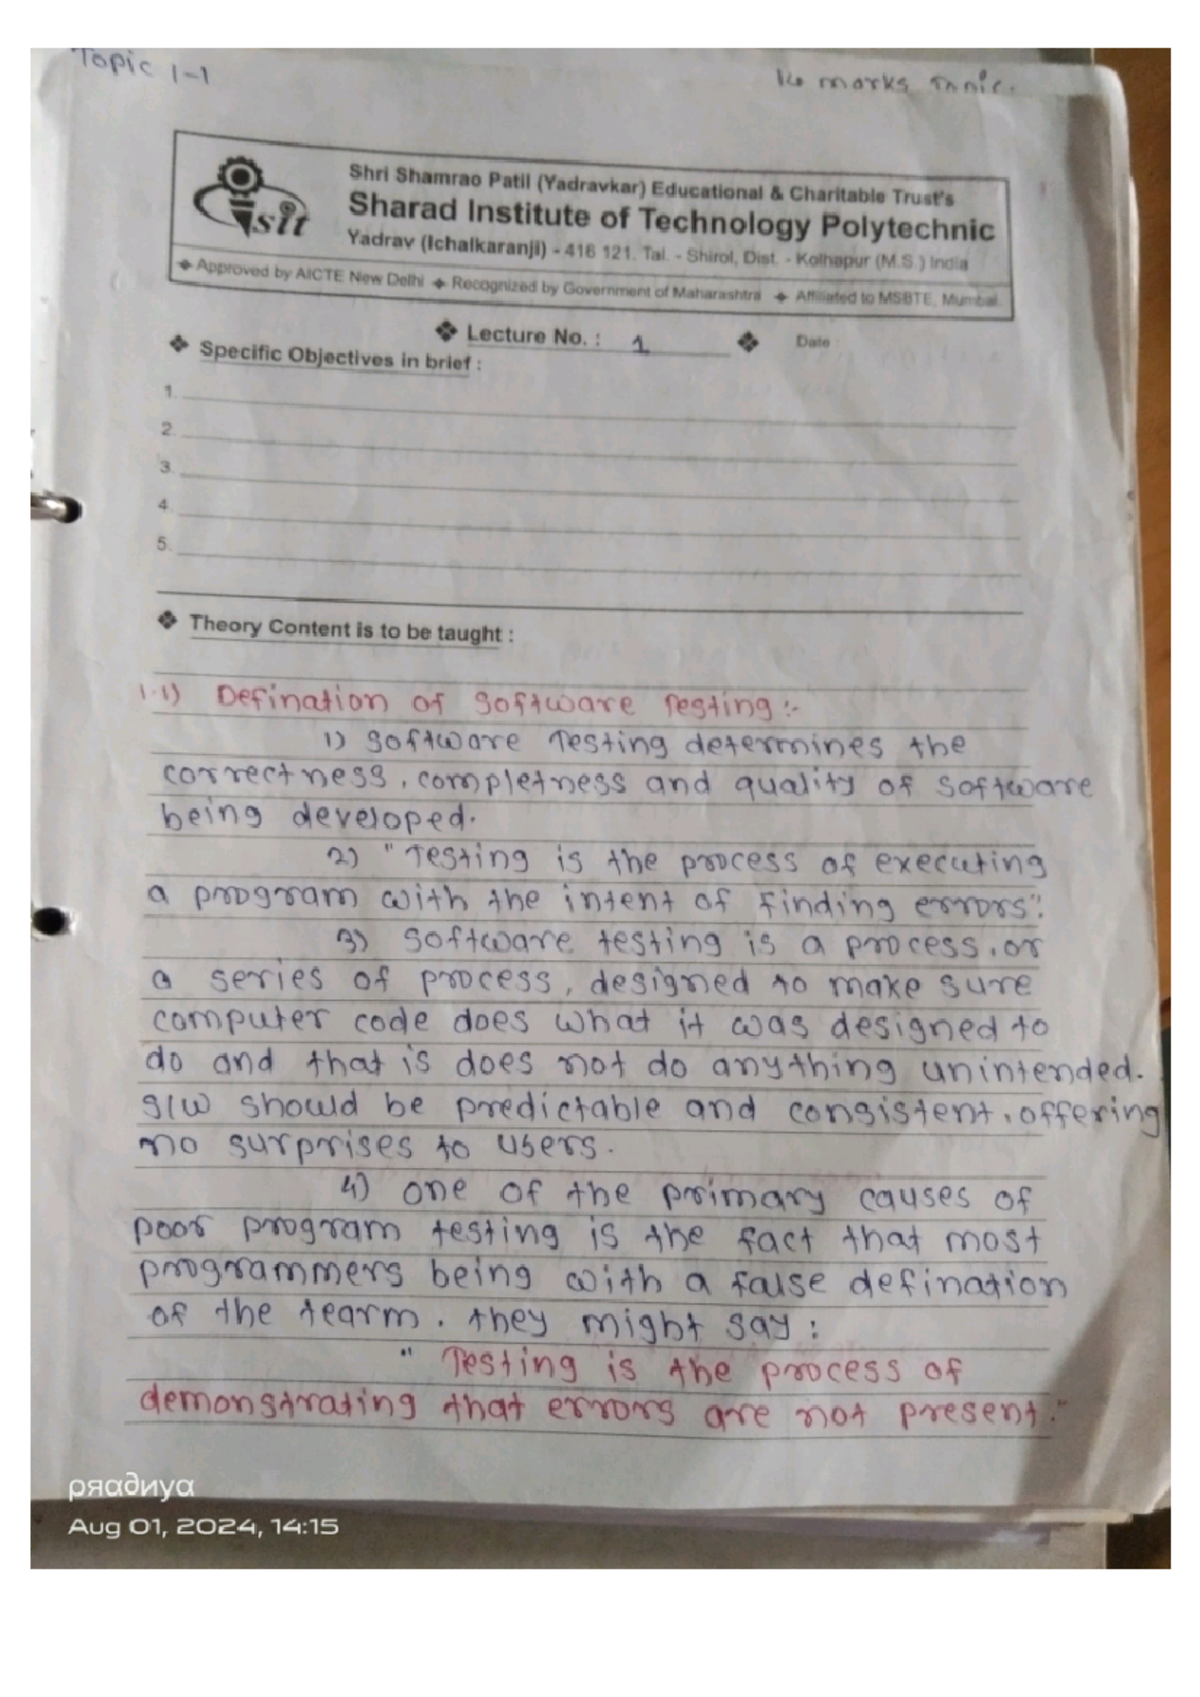 Topic 1-1
marks
Shri Shamrao Patil (Yadravkar) Educational & Charitable Trust's
Sharad Institute of Technology Polytechnic
Yadrav (Ichalkaranji) - 416 121. Tal. - Shirol, Dist. - Kolhapur (M.S.) India
Approved by AICTE New Delhi ❖ Recognized by Government of Maharashtra ❖ Affiliated to MSBTE, Mumbai.
sit
❖ Lecture No. : 1 ❖ Date
❖ Specific Objectives in brief :
1.
2.
3.
4.
5.
❖ Theory Content is to be taught :
1.1) Defination of software Testing :-
1) software Testing determines the
correctness, completness and quality of software
being developed.
2) "Testing is the process of executing
a program with the intent of finding errors".
3) software testing is a process, or
a series of process, designed to make sure
computer code does what it was designed to
do and that is does not do anything unintended.
s/w should be predictable and consistent, offering
no surprises to users.
4) one of the primary causes of
poor program testing is the fact that most
programmers being with a false defination
of the tearm. they might say :
" Testing is the process of
demonstrating that errors are not present."
pяadиya
Aug 01, 2024, 14:15